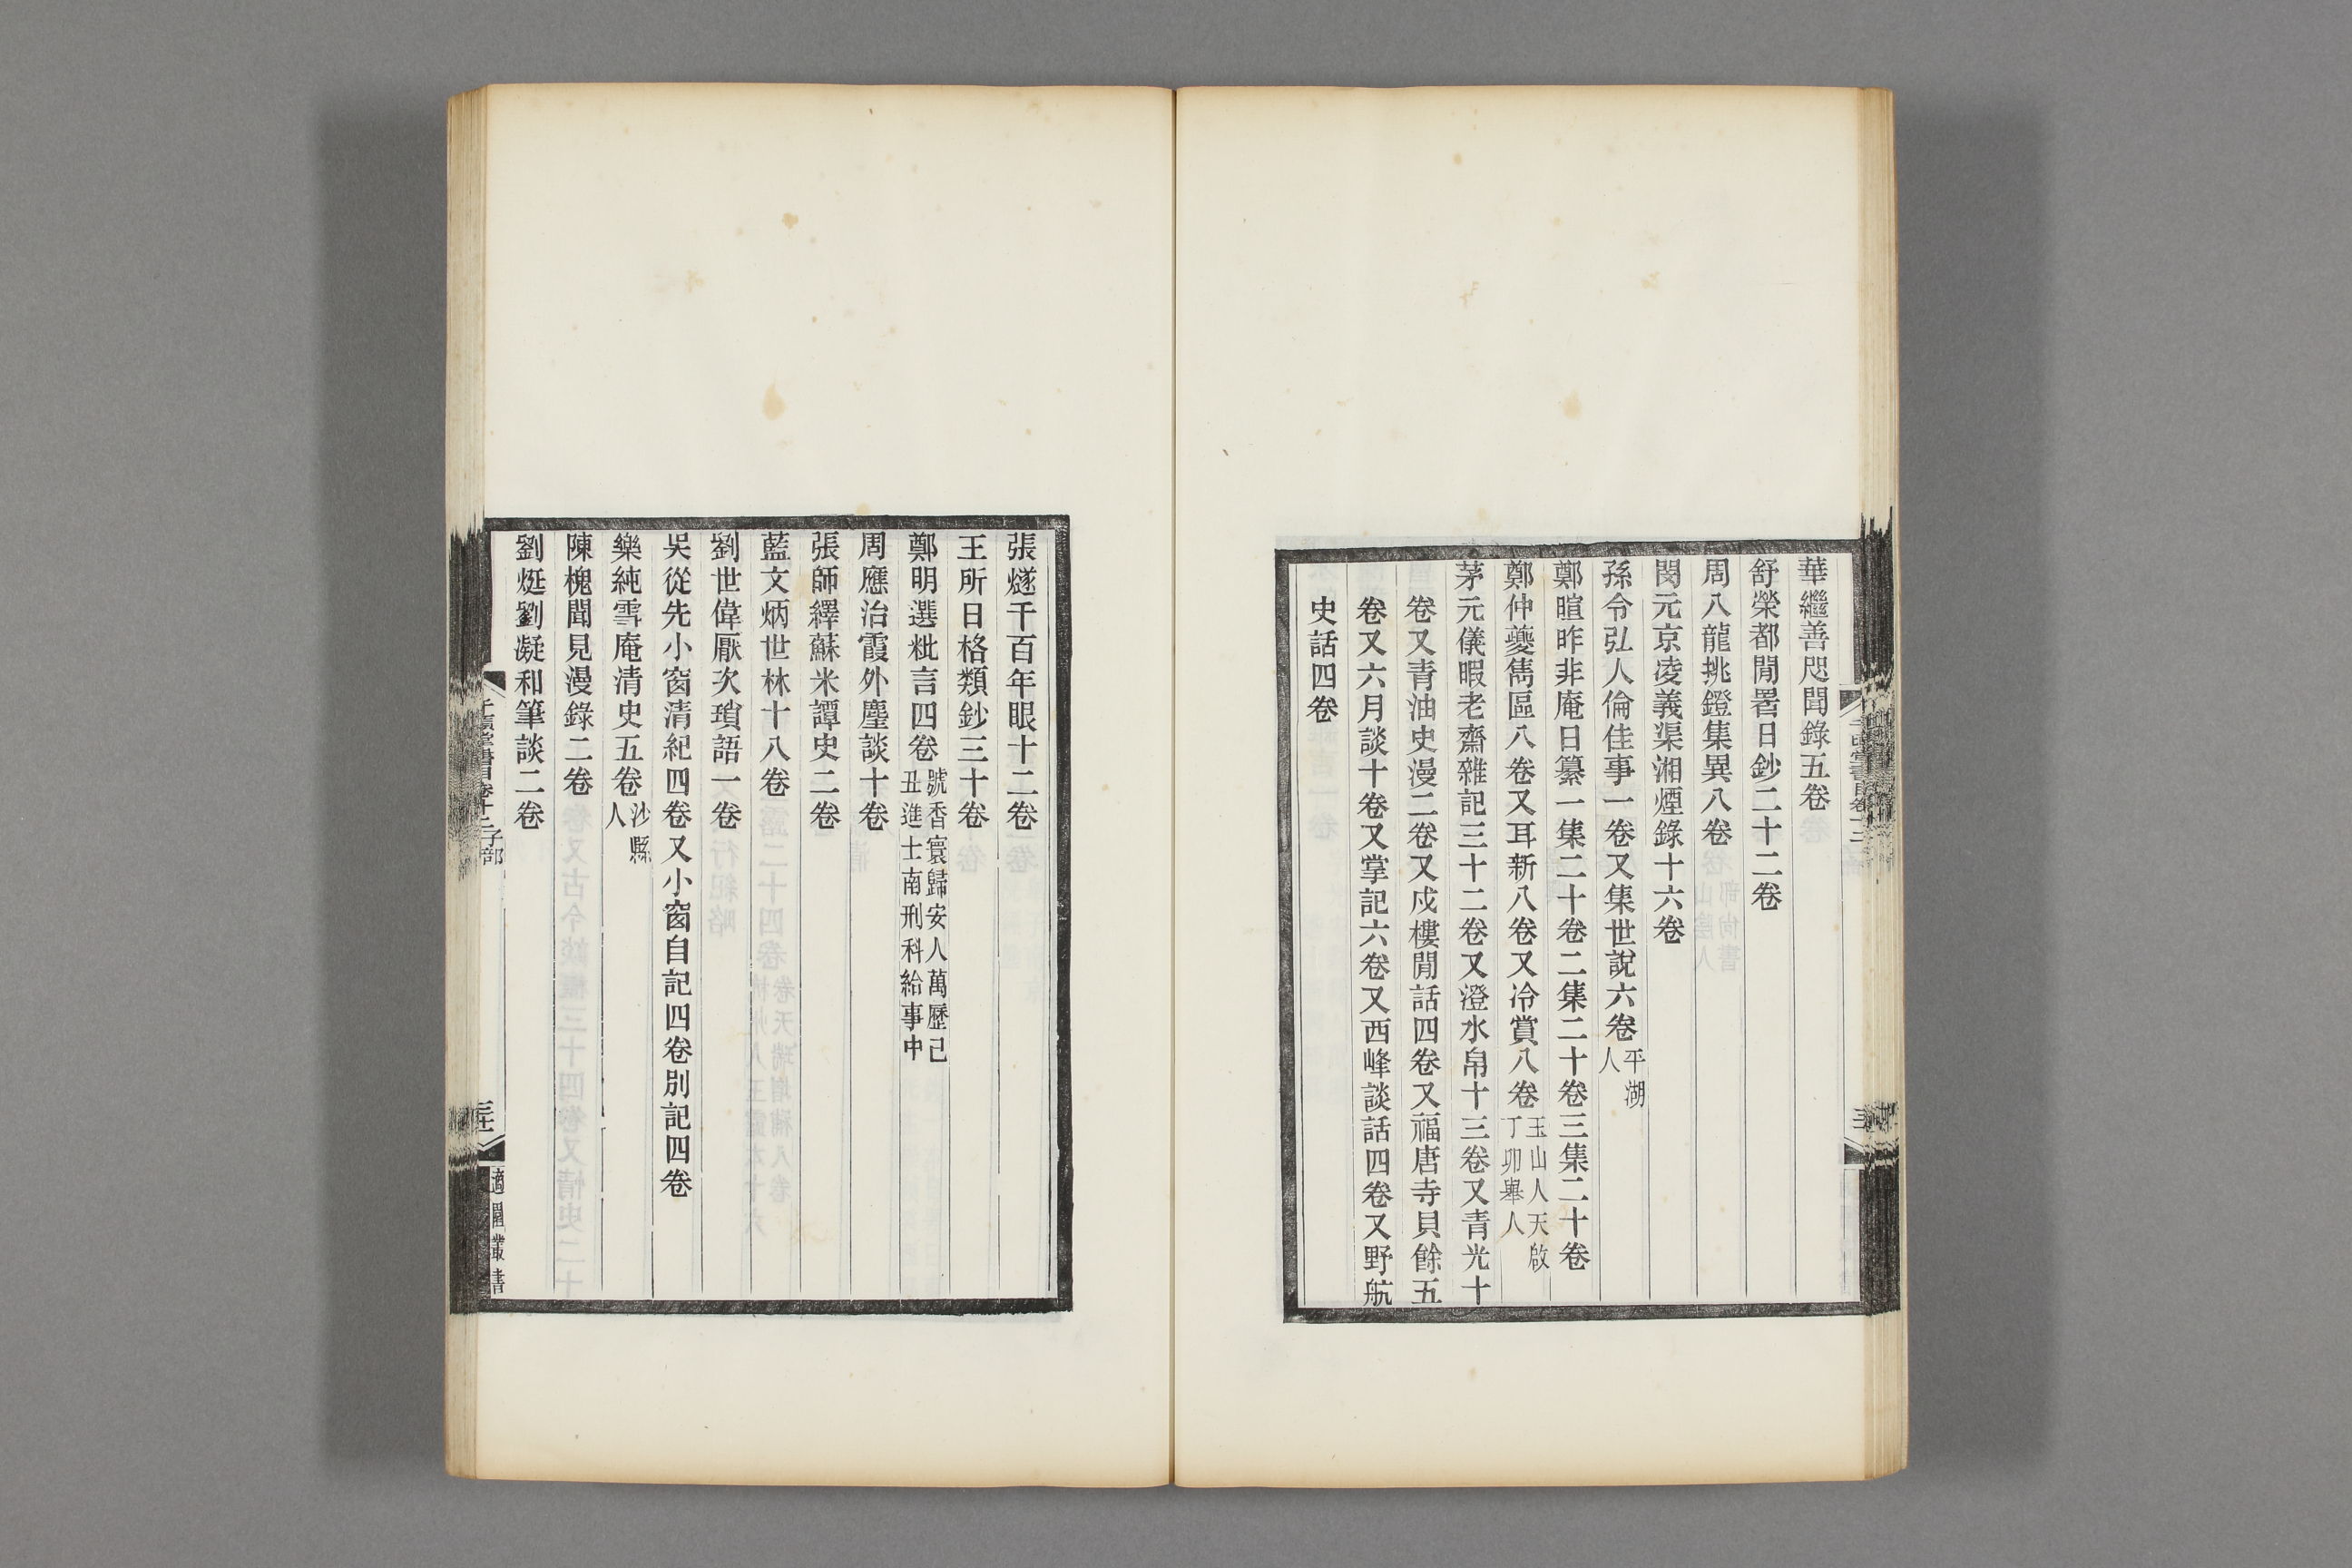 華繼善咫聞錄五卷
舒榮都閒署日鈔二十二卷
周八龍挑鐙集異八卷
閔元京凌義渠湘煙錄十六卷
孫令弘人倫佳事一卷又集世說六卷平湖人
鄭暄昨非庵日纂一集二十卷二集二十卷三集二十卷
鄭仲夔雋區八卷又耳新八卷又冷賞八卷玉山人天啟丁卯舉人
茅元儀暇老齋雜記三十二卷又澄水帛十三卷又青光十
卷又青油史漫二卷又戍樓閒話四卷又福唐寺貝餘五
卷又六月談十卷又掌記六卷又西峰談話四卷又野航
史話四卷
張燧千百年眼十二卷
王所日格類鈔三十卷
鄭明選秕言四卷號春寰歸安人萬歷己丑進士南刑科給事中
周應治霞外麈談十卷
張師繹蘇米譚史二卷
藍文炳世林十八卷
劉世偉厭次瑣語一卷
吳從先小窗清紀四卷又小窗自記四卷別記四卷
樂純雪庵清史五卷沙縣人
陳槐聞見漫錄二卷
劉烶劉凝和筆談二卷
千頃堂書目卷十二子部
適園叢書